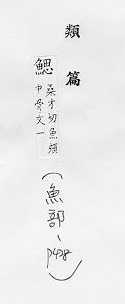 類篇
鰓 桑才切魚頰
中骨文一
（魚部、p428）